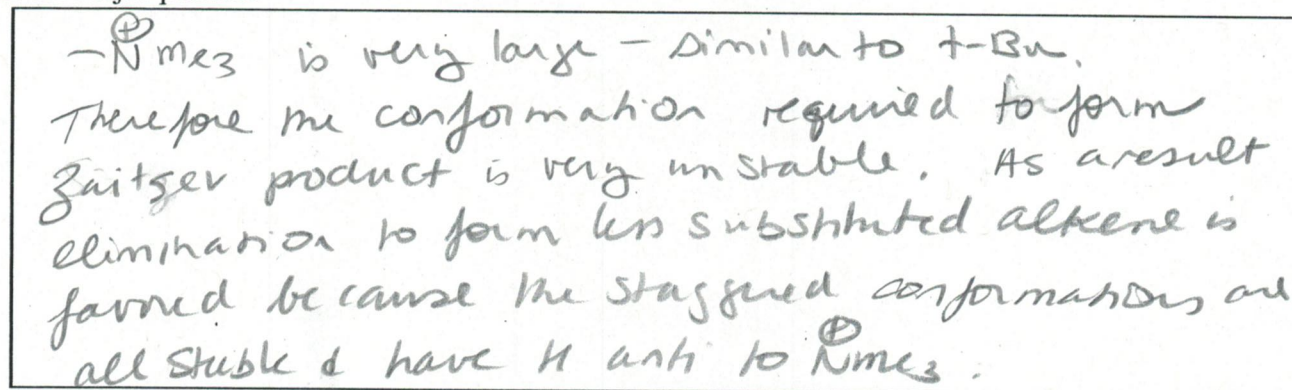 -N⊕me3 is very large - similar to t-Bu.
Therefore the conformation required to form
Zaitsev product is very unstable. As a result
elimination to form less substituted alkene is
favored because the staggered conformations are
all stable & have H anti to N⊕me3.